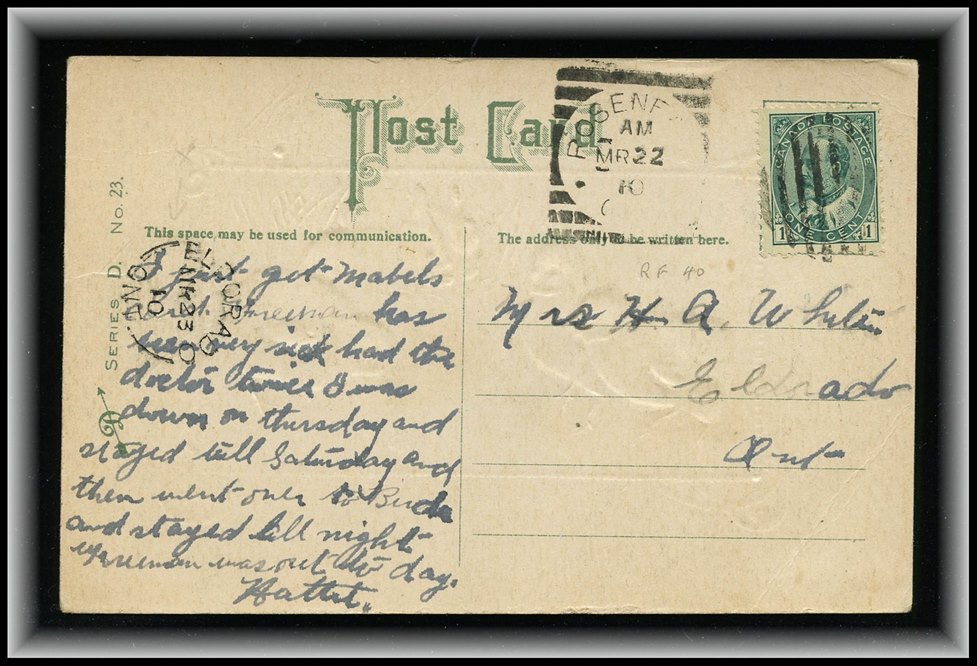 Post Card
ROSENE
AM
MR 22
10
CANADA POSTAGE
1 ONE CENT 1
SERIES D. No. 23.
This space may be used for communication.
The address be written here.
RF 40
ELDORADO
MR 23
10
I just got Mabels
Freeman has
been very sick had the
doctor twice I was
down on thursday and
stayed till Saturday and
then went over to
and stayed till night
Freeman was out to day.
Hattie.
Mrs H A.
Eldorado
Ont